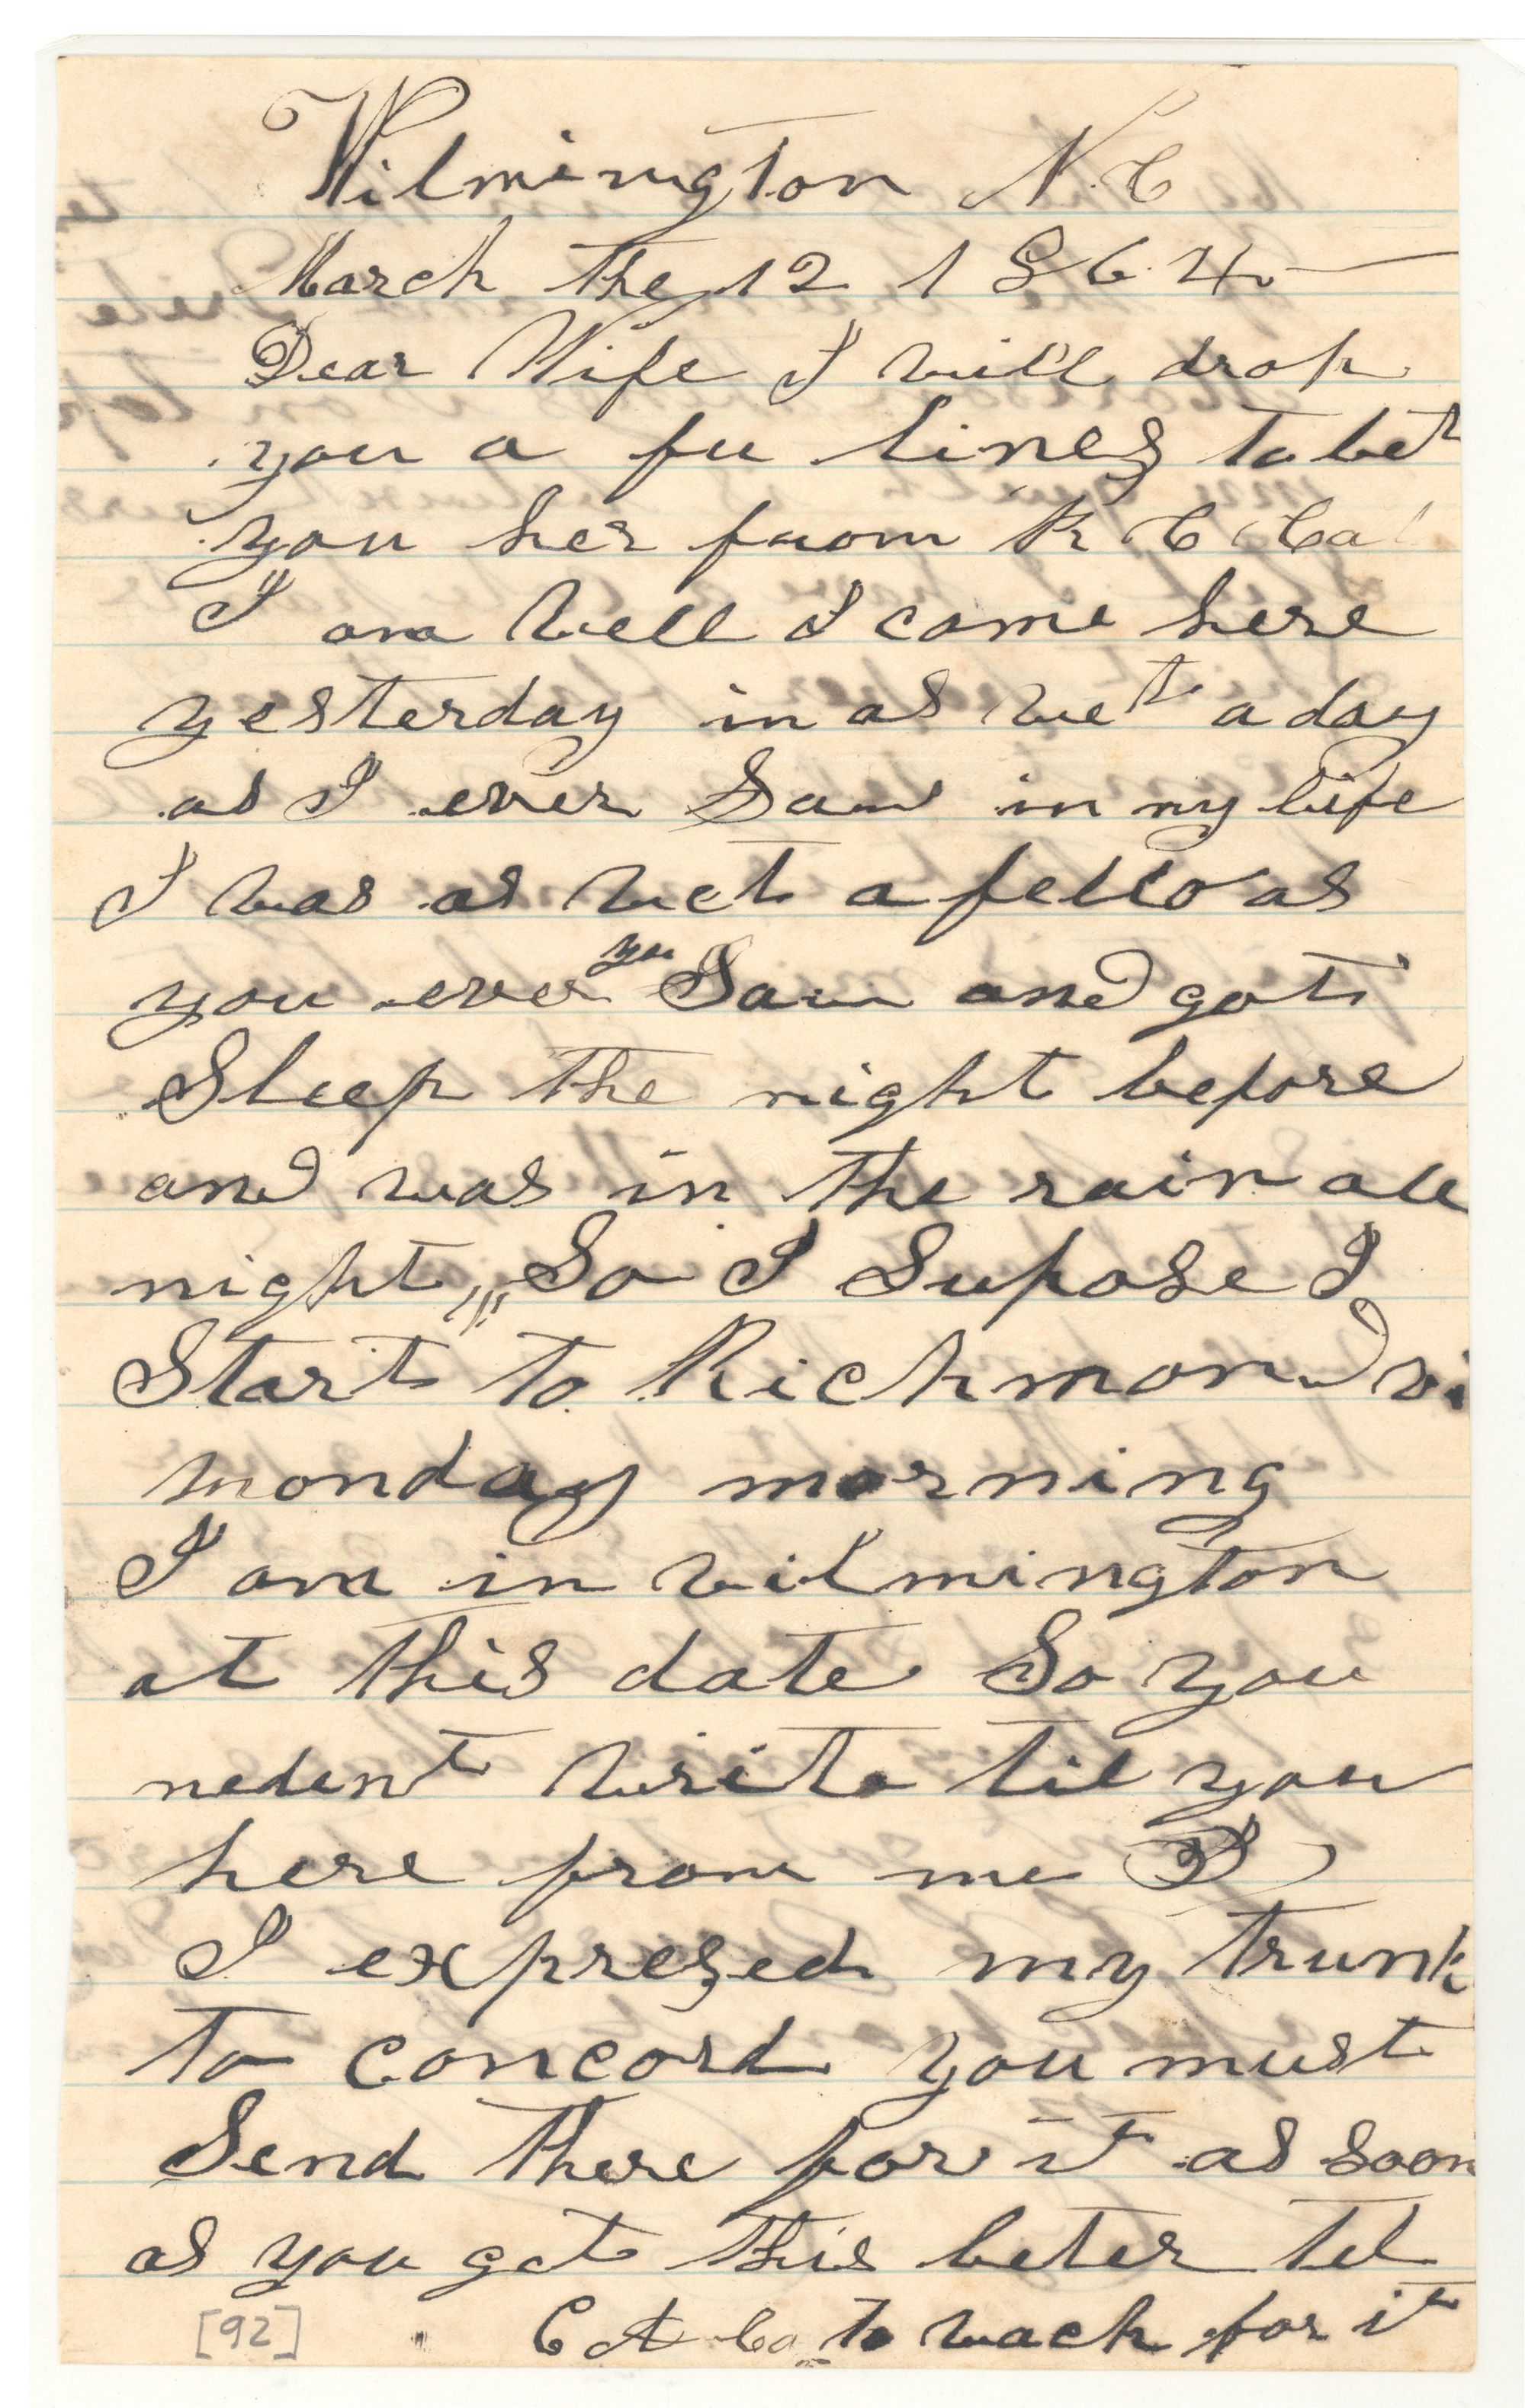 Wilmington N.C
March the 12 1864
Dear Wife I will drop
you a fu lines to let
you her from R C Ca
I am well I come here
yesterday in as wet a day
as I ever Saw in my life
I was as wet a fello as
you ever you Saw and got
Sleep the night before
and was in the rain all
night So I Supose I
Start to Richmond vi
monday morning
I am in wilmington
at this date So you
nedent write til you
here from me
I expresed my trunk
to concord you must
Send there for it as soon
as you get this leter tel
C A Ca to wach for it
[92]